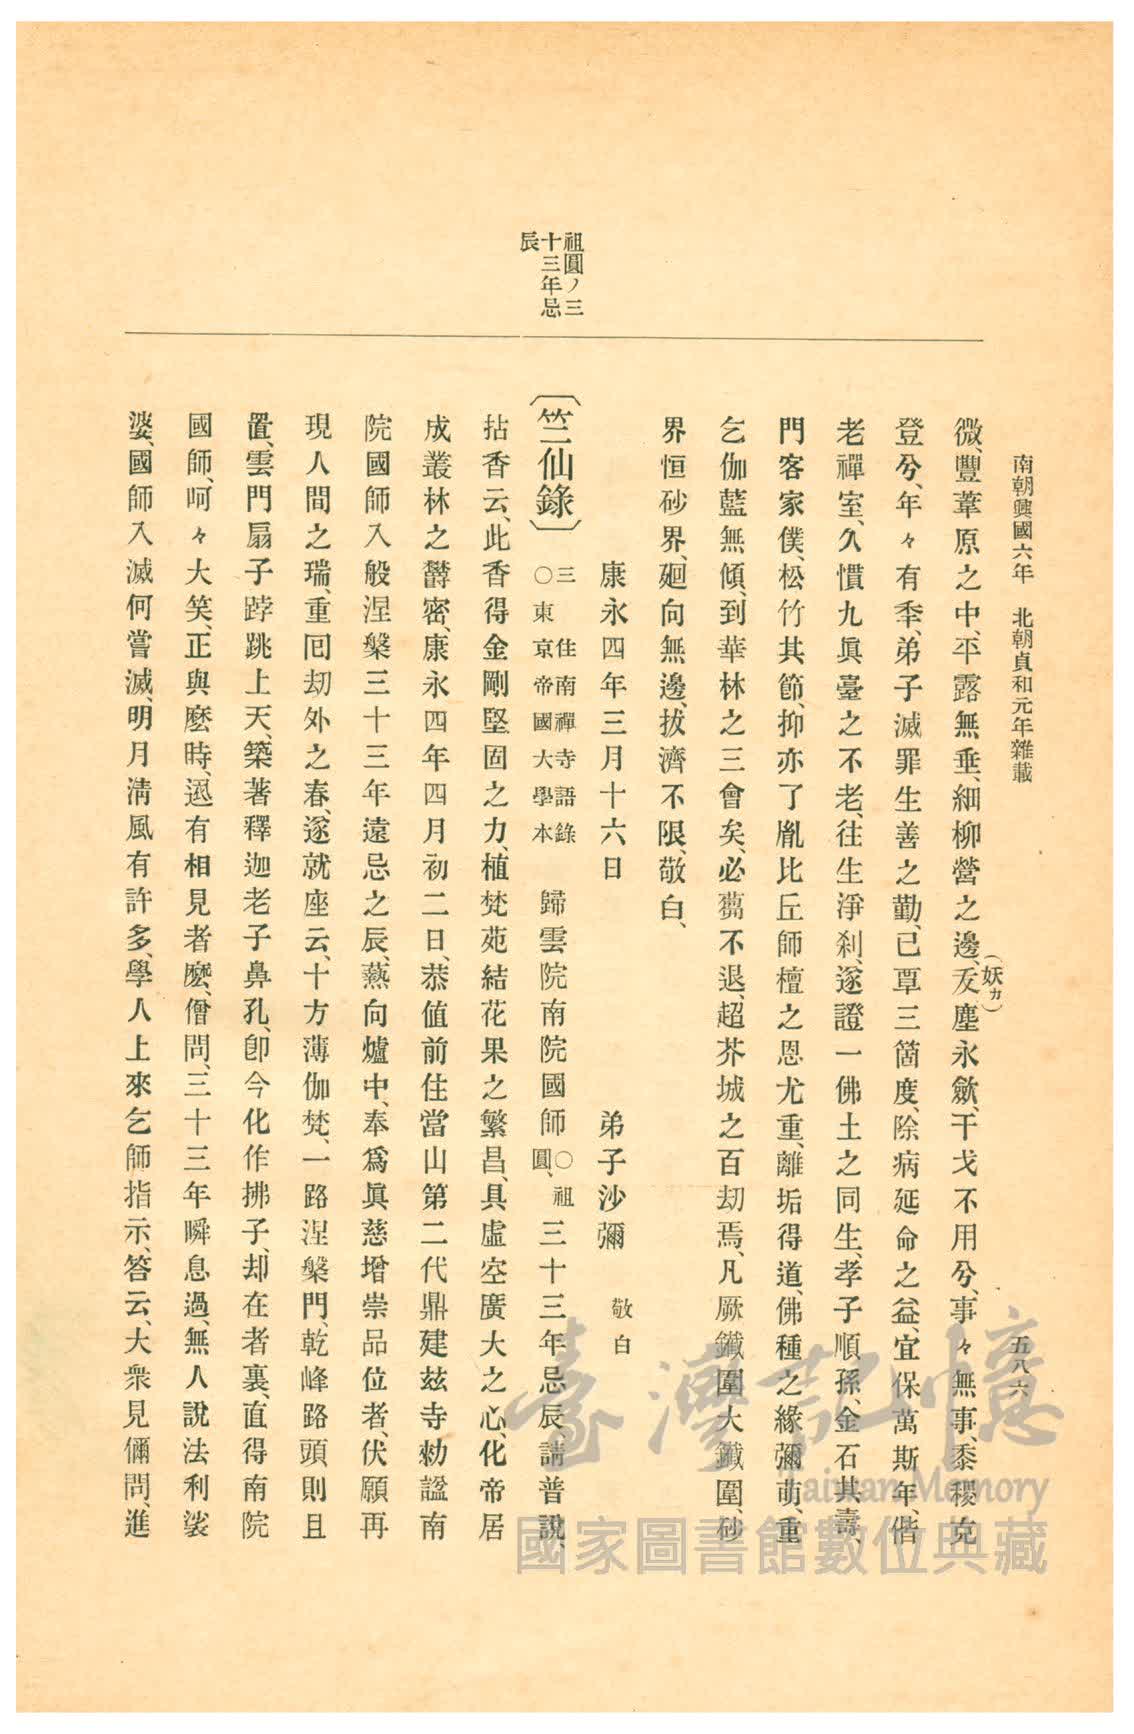 南朝興國六年　北朝貞和元年雜載
五八六
祖圓ノ三
十三年忌
辰
微、豐葦原之中、平露無垂、細柳營之邊、友塵永歛、干戈不用兮、事々無事、黍稷克
(妖カ)
登兮、年々有季、弟子滅罪生善之勤、已覃三箇度、除病延命之益、宜保萬斯年、偕
老禪室、久慣九眞臺之不老、往生淨刹、遂證一佛土之同生、孝子順孫、金石其壽、
門客家僕、松竹其節、抑亦了胤比丘師檀之恩尤重、離垢得道、佛種之緣彌萌、重
乞伽藍無傾、到華林之三會矣、必蒭不退、超芥城之百劫焉、凡厥鐵圍大鐵圍、砂
界恒砂界、廻向無邊、拔濟不限、敬白、
康永四年三月十六日　弟子沙彌　敬白
〔竺仙錄〕三住南禪寺語錄
○東京帝國大學本
歸雲院南院國師○祖圓、三十三年忌辰、請普說、
拈香云、此香得金剛堅固之力、植梵苑結花果之繁昌、具虛空廣大之心、化帝居
成叢林之欝密、康永四年四月初二日、恭値前住當山第二代鼎建玆寺勅謚南
院國師入般涅槃三十三年遠忌之辰、爇向爐中、奉爲眞慈增崇品位者、伏願再
現人間之瑞、重回劫外之春、遂就座云、十方薄伽梵、一路涅槃門、乾峰路頭、則且
置、雲門扇子𨁝跳上天、築著釋迦老子鼻孔、卽今化作拂子、却在者裏、直得南院
國師、呵々大笑、正與麼時、還有相見者麽、僧問、三十三年瞬息過、無人說法利娑
婆、國師入滅何嘗滅、明月淸風有許多、學人上來乞師指示、答云、大衆見儞問、進
臺灣記憶
Taiwan Memory
國家圖書館數位典藏